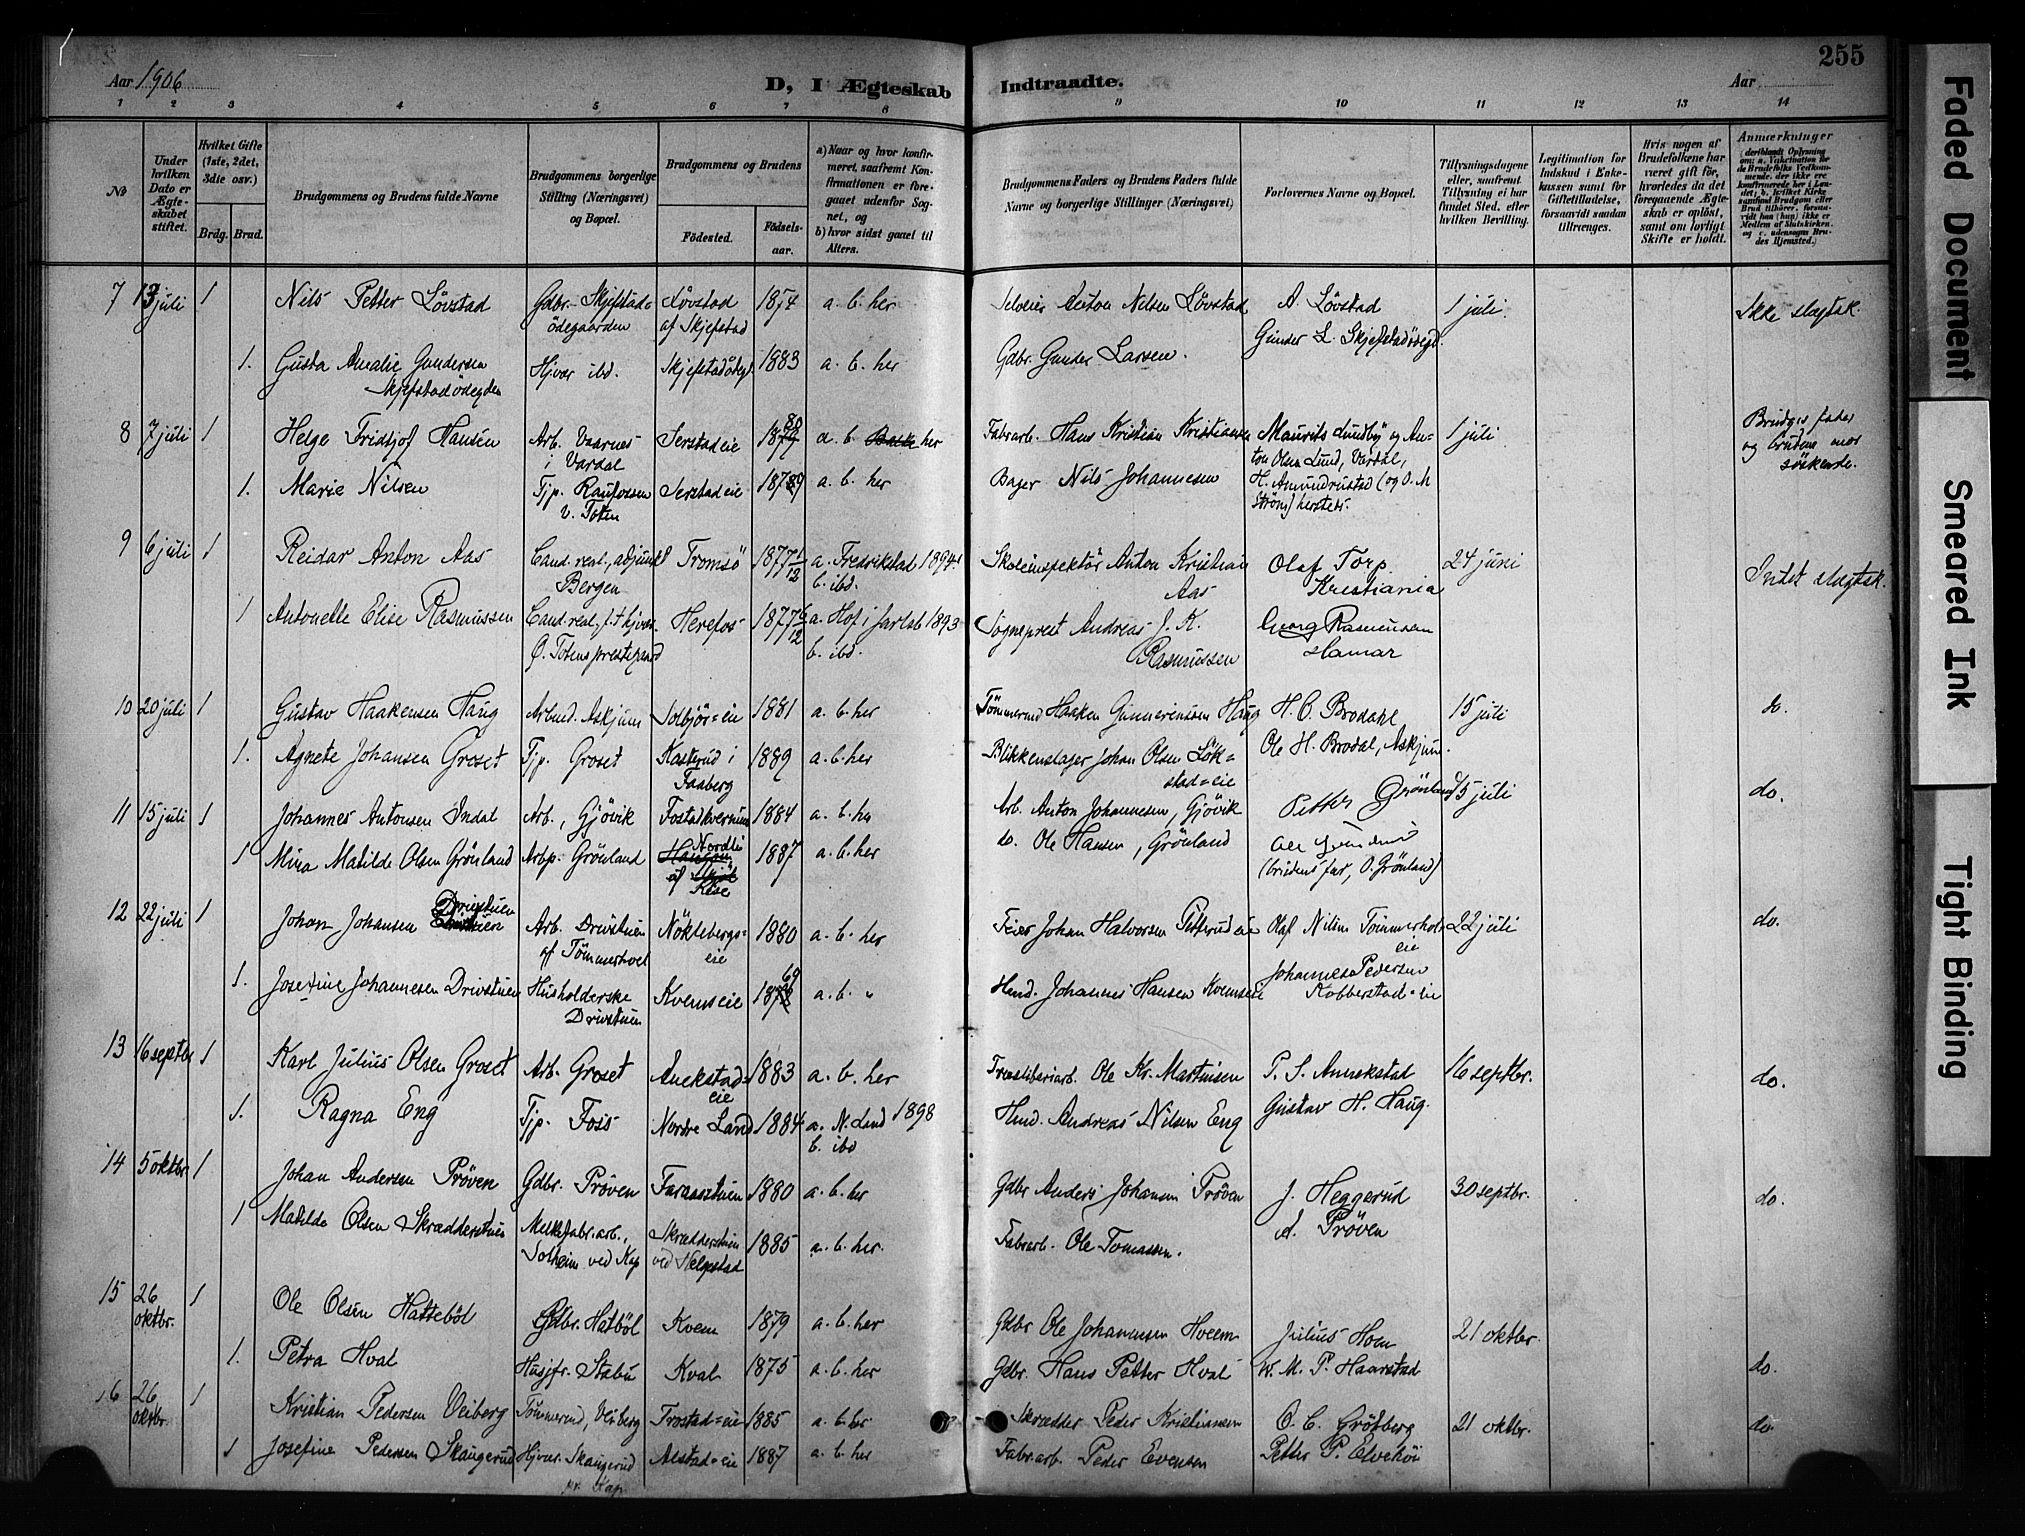 255
Aar 1906
D, I Ægteskab Indtraadte.
Aar
1 2 3 4 5 6 7 8 9 10 11 12 13 14
No
Under hvilken Dato er Ægteskabet stiftet.
Hvilket Gifte (1ste, 2det, 3die osv.)
Brdg. Brud.
Brudgommens og Brudens fulde Navne
Brudgommens borgerlige Stilling (Næringsvei) og Bopæl.
Brudgommens og Brudens
Fødested. Fødselsaar.
a) Naar og hvor konfirmeret, saafremt Konfirmationen er foregaaet udenfor Sognet, og
b) hvor sidst gaaet til Alters.
Brudgommens Faders og Brudens Faders fulde Navne og borgerlige Stillinger (Næringsvei)
Forlovernes Navne og Bopæl.
Tillysningsdagene eller, saafremt Tillysning ei har fundet Sted, efter hvilken Bevilling.
Legitimation for Indskud i Enkekassen samt for Giftetilladelse, forsaavidt saadan tiltrænges.
Hvis nogen af Brudefolkene har været gift før, hvorledes da det foregaaende Ægteskab er opløst, samt om lovligt Skifte er holdt.
Anmærkninger
7 13 juli 1 Nils Petter Lövstad Gdbr. Skjefstadödegaarden Lövstad af Skjefstad 1854 a. b. her Selveier Anton Nilsen Lövstad A. Lövstad 1 juli Ikke slægtsk.
1. Gusta Amalie Gundersen Skjefstadödegden Hjvær ibd. Skjefstadödegd 1883 a. b. her Gdbr. Gunder Larsen. Gunder L. Skjefstadödegd.
8 7 juli 1 Helge Fridtjof Hansen Arb. Vaarnes i Vardal Serstadeie 1880 a. b. her Fabrarb. Hans Kristian Kristiansen Maurits Lundby og Anton Olsen Lund, Vardal, 1 juli Brudgs fader og brudens mor söskende.
1. Marie Nilsen Tjp. Raufossen v. Toten Serstadeie 1879 a. b. her Bager Nils Johannesen H. Amundrustad (og O. M Ström) herstedr.
9 6 juli 1 Reidar Anton Aas Cand. real., adjunkt Bergen Tromsö 1877 1/12 a. Fredrikstad 1894. b. ibd. Skoleinspektör Anton Kristian Aas Olaf Torp Kristiania 24 juni Intet slægtsk.
1 Antonette Elise Rasmussen Cand. real., f. t. hjvær. Ø. Totens prestegaard Herefos 1877 6/12 a. Hof i Jarlsb 1893 b. ibd. Sogneprest Andreas J. K. Rasmussen Georg Rasmussen Hamar
10 20 juli 1 Gustav Haakensen Haug Arbmd. Askjum Solbjör=eie 1881 a. b. her Tömmermd Haaken Gunnerinssen Haug H. O. Brodahl 15 juli do.
1. Agnete Johansen Groset Tjp. Groset Kasterud i Faaberg 1889 a. b. her Blikkenslager Johan Olsen Lökstad=eie Ole H. Brodal, Askjum.
11 15 juli 1 Johannes Antonsen Indal Arb., Gjövik Fostadkvernum 1884 a. b. her Arb. Anton Johannesen, Gjövik Petter Grönland 15 juli do.
1 Mina Matilde Olsen Grönland Arbp. Grönland Nordli af Kise 1887 a. b. her do. Ole Hansen, Grönland (brudens far, O. Grönland)
12 22 juli 1 Johan Johansen Drivstuen Arb. Drivstuen af Tömmerhoel Nöklebergseie 1880 a. b. her Feier Johan Halvorsen Petterudeie Olaf Nilsen Tömmerholeie 22 juli do.
1. Josefine Johannesen Drivstuen Husholderske Drivstuen Kvemseie 1869 a. b. " Hmd. Johannes Hansen Kvemseie Johannes Pedersen Kobberstad=eie
13 16 septbr 1 Karl Julius Olsen Groset Arb. Groset Anekstadeie 1883 a. b. her Træsliberiarb. Ole Kr. Martinsen P. S. Annekstad 16 septbr. do.
1. Ragna Eng Tjp. Foss Nordre Land 1884 a. N. Land 1898 b. ibd Hmd. Andreas Nilsen Eng Gustav H. Haug.
14 5 oktbr 1 Johan Andersen Pröven Gdbr. Pröven Faraasstuen 1880 a. b. her Gdbr Anders Johansen Pröven J. Heggerud 30 septbr. do.
1 Matilde Olsen Skrædderstuen Melkefabr.arb., Solheim ved Kap Skrædderstuen ved Helgestad 1885 a. b. her. Fabrarb. Ole Tomassen. A. Pröven
15 26 oktbr. 1 Ole Olsen Hatteböl Gdbr. Hatböl Kvem 1879 a. b. her Gdbr Ole Johannesen Hveem Julius Hoen 21 oktbr.
1. Petra Hval Husjfr. Stabu Kval 1875 a. b. her Gdbr. Hans Petter Hval W. M. P. Haarstad do.
16 26 oktbr. 1 Kristian Pedersen Veiberg Tömmermd, Veiberg Trostad=eie 1885 a. b. her Skrædder Peder Kristiansen O. C. Grötberg 21 oktbr. do.
1 Josefine Pedersen Skaugerud Hjvær. Skaugerud pr. Kap Alstad=eie 1887 a. b. her Fabr.arb. Peder Evensen Petter P. Elvehöi
Faded Document
Smeared Ink
Tight Binding